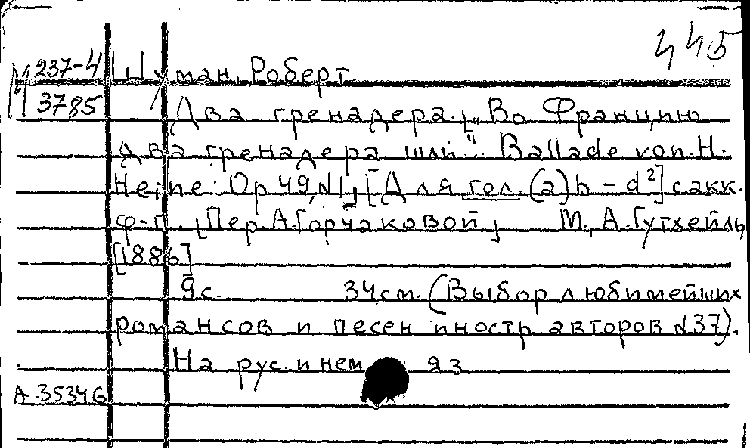 445
М 237-4 Шуман, Роберт
3785
Два гренадера. „Во Францию
два гренадера шли“. Ballade von H.
Heine. Op 49, №1, [Для гол. (a) h – d²] с акк.
ф-п. [Пер. А. Горчаковой] М., А. Гутхейль
[1886]
9 с. 34 см. (Выбор любимейших
романсов и песен иностр. авторов №37).
На рус. и нем. яз
А.35346